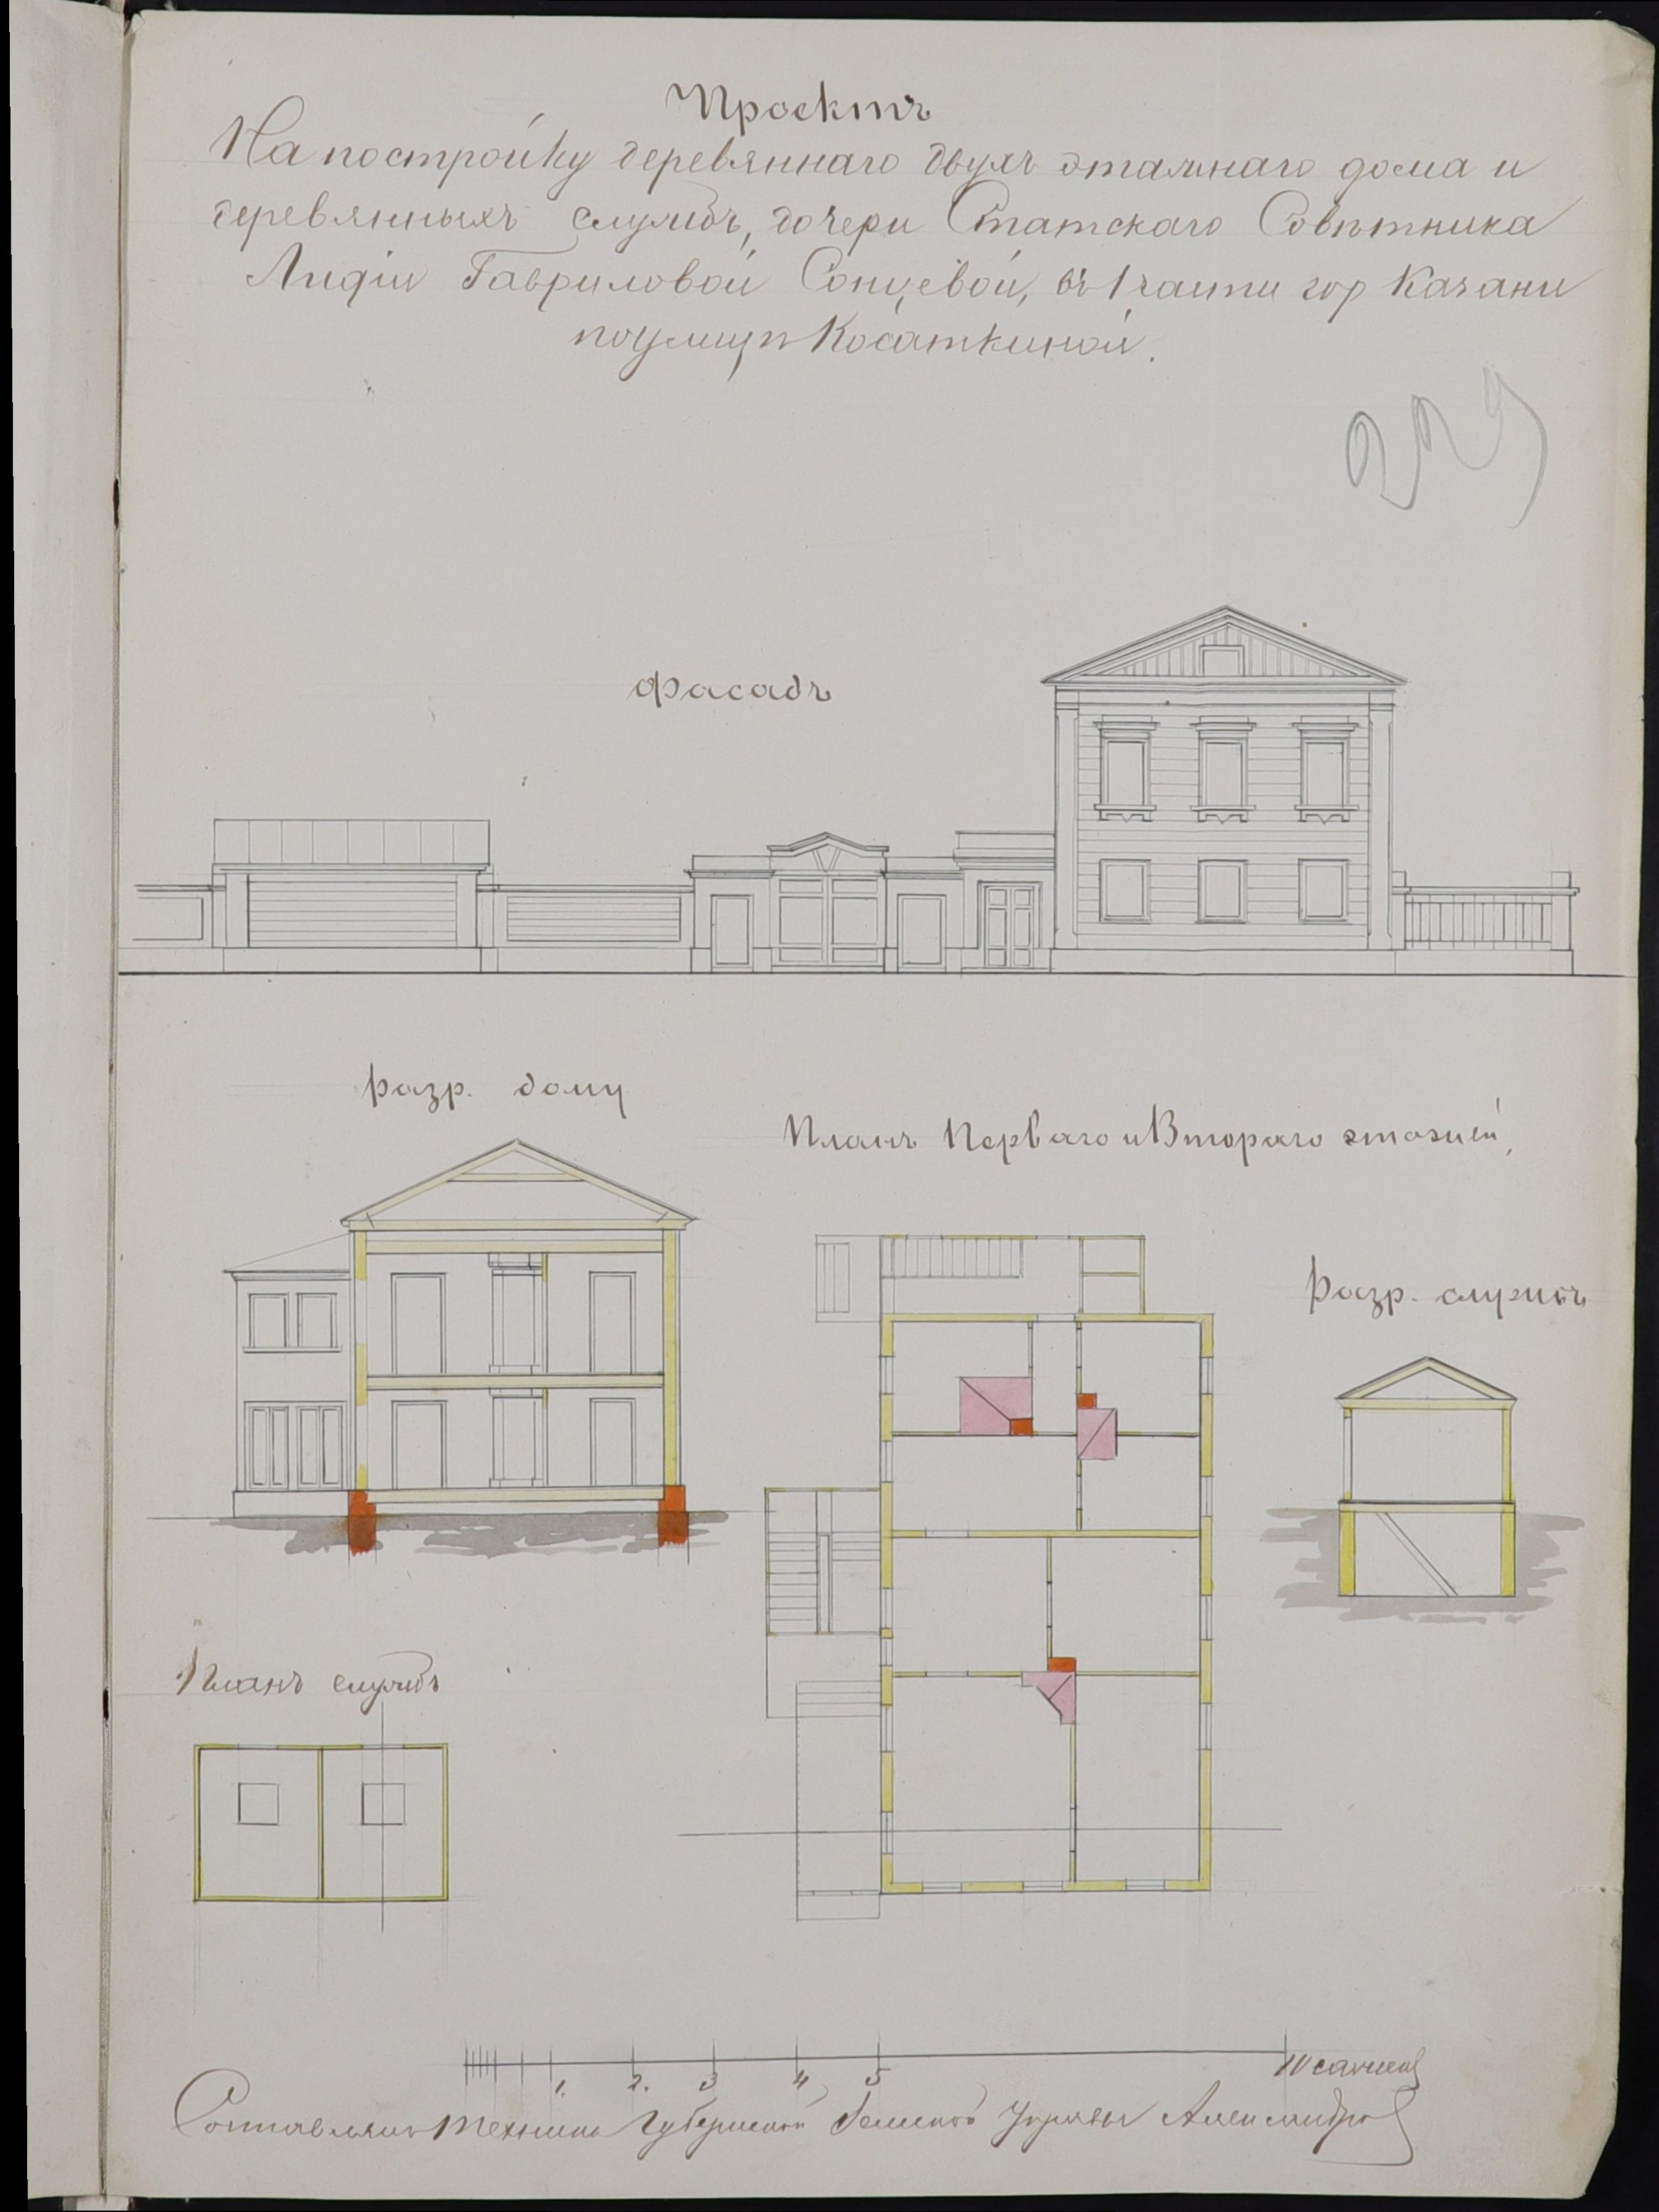 Проектъ
На постройку деревяннаго двухъ этажнаго дома и
деревянныхъ службъ, дочери Статскаго Совѣтника
Лидіи Гавриловой Сонцевой, въ 1 части гор Казани
по улицѣ Касаткиной.
229
Фасадъ
Разр. дому
Планъ Перваго и Втораго этажей,
Разр. службъ
Планъ службъ
1. 2. 3 4 5 10 сажень
Составлялъ Техникъ Губернской Земской Управы Александров